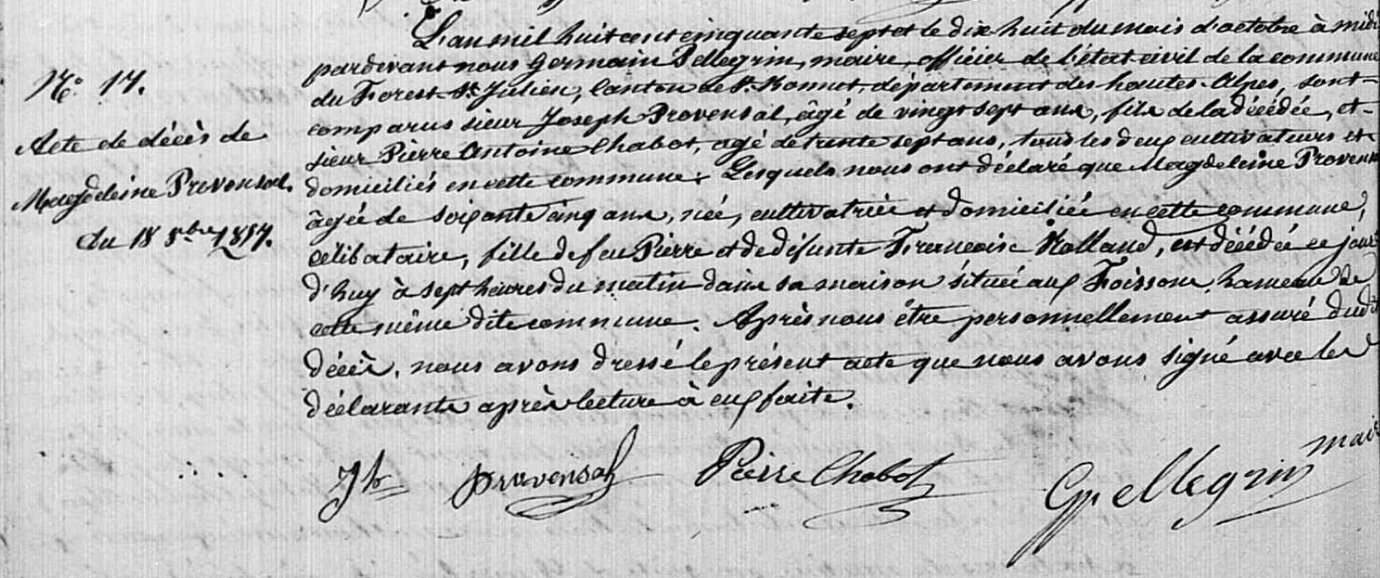 N.o 17.
Acte de décès de
Magdeleine Provensal.
du 18 8bre 1857.
L'an mil huit cent cinquante sept et le dix huit du mois d'octobre à midi
pardevant nous Germain Pellegrin, maire, officier de l'état civil de la commune
du Forest-St Julien, Canton de St. Bonnet, département des hautes-Alpes, sont-
comparus sieur Joseph Provensal, âgé de vingt sept ans, fils de la décédée, et-
sieur Pierre Antoine Chabot, agé de trente sept ans, tous les deux cultivateurs et
domiciliés en cette commune; Lesquels nous ont déclaré que Magdeleine Provens
âgée de soixante cinq ans, née, cultivatrice et domiciliée en cette commune,
célibataire, fille de feu Pierre et de défunte Françoise Rolland, est décédée ce jour
d'huy à sept heures du matin dans sa maison située aux Foissons, hameau de
cette même dite commune. Après nous être personnellement assuré dudt
décès, nous avons dressé le présent acte que nous avons signé avec les
déclarants après lecture à eux faite.
Jh Provensal Pierre Chabot Gpellegrin mair